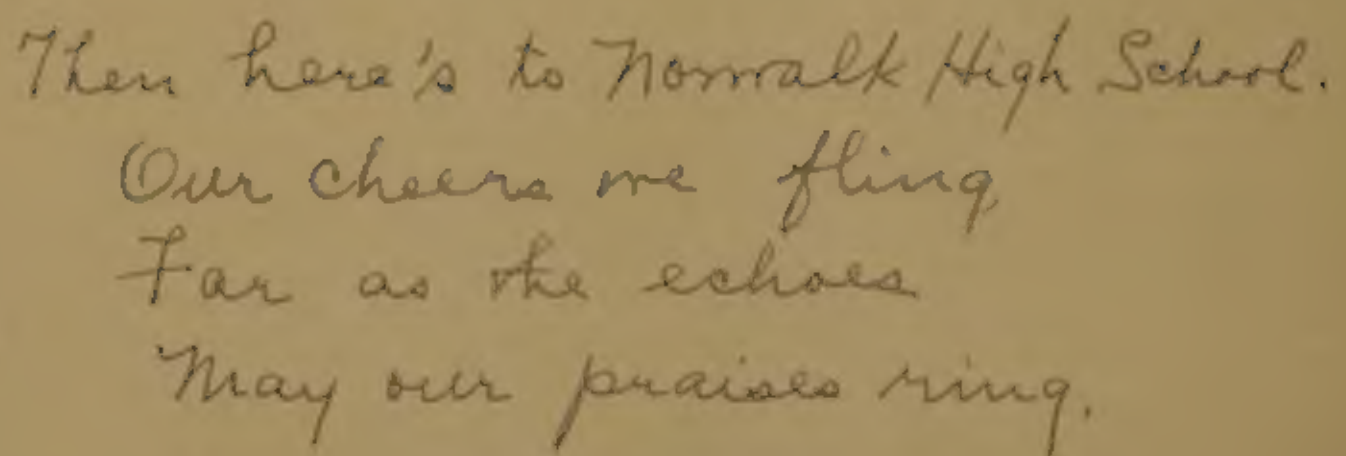 Then here's to Norwalk High School.
Our cheers we fling,
Far as the echoes
May our praises ring.